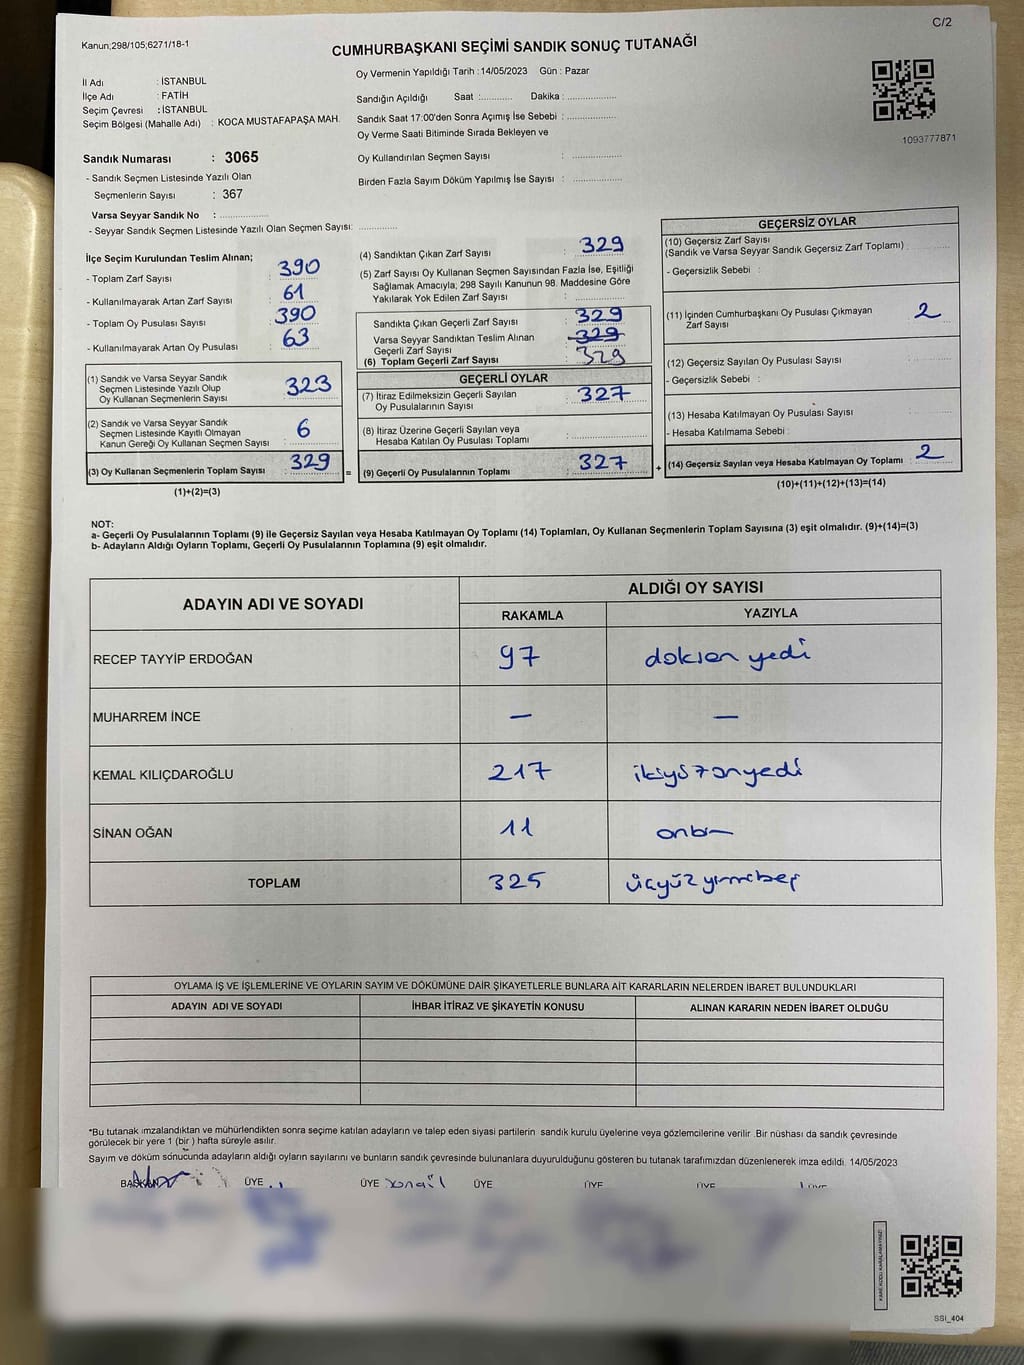 C/2
Kanun;298/105;6271/18-1
CUMHURBAŞKANI SEÇİMİ SANDIK SONUÇ TUTANAĞI
İl Adı : İSTANBUL
İlçe Adı : FATİH
Seçim Çevresi : İSTANBUL
Seçim Bölgesi (Mahalle Adı) : KOCA MUSTAFAPAŞA MAH.
Sandık Numarası : 3065
- Sandık Seçmen Listesinde Yazılı Olan
Seçmenlerin Sayısı : 367
Varsa Seyyar Sandık No : ....................
- Seyyar Sandık Seçmen Listesinde Yazılı Olan Seçmen Sayısı: ...............
Oy Vermenin Yapıldığı Tarih : 14/05/2023 Gün : Pazar
Sandığın Açıldığı Saat :............ Dakika : ..................
Sandık Saat 17:00'den Sonra Açımış İse Sebebi : ..................
Oy Verme Saati Bitiminde Sırada Bekleyen ve
Oy Kullandırılan Seçmen Sayısı : ..................
Birden Fazla Sayım Döküm Yapılmış İse Sayısı : ..................
1093777871
İlçe Seçim Kurulundan Teslim Alınan;
- Toplam Zarf Sayısı : 390
- Kullanılmayarak Artan Zarf Sayısı : 61
- Toplam Oy Pusulası Sayısı : 390
- Kullanılmayarak Artan Oy Pusulası : 63
(1) Sandık ve Varsa Seyyar Sandık
Seçmen Listesinde Yazılı Olup
Oy Kullanan Seçmenlerin Sayısı : 323
(2) Sandık ve Varsa Seyyar Sandık
Seçmen Listesinde Kayıtlı Olmayan
Kanun Gereği Oy Kullanan Seçmen Sayısı : 6
(3) Oy Kullanan Seçmenlerin Toplam Sayısı : 329 =
(1)+(2)=(3)
(4) Sandıktan Çıkan Zarf Sayısı : 329
(5) Zarf Sayısı Oy Kullanan Seçmen Sayısından Fazla İse, Eşitliği
Sağlamak Amacıyla; 298 Sayılı Kanunun 98. Maddesine Göre
Yakılarak Yok Edilen Zarf Sayısı : ..................
Sandıkta Çıkan Geçerli Zarf Sayısı : 329
Varsa Seyyar Sandıktan Teslim Alınan : 329
Geçerli Zarf Sayısı
(6) Toplam Geçerli Zarf Sayısı : 329
GEÇERLİ OYLAR
(7) İtiraz Edilmeksizin Geçerli Sayılan
Oy Pusulalarının Sayısı : 327
(8) İtiraz Üzerine Geçerli Sayılan veya
Hesaba Katılan Oy Pusulası Toplamı : ..................
(9) Geçerli Oy Pusulalarının Toplamı : 327 +
GEÇERSİZ OYLAR
(10) Geçersiz Zarf Sayısı
(Sandık ve Varsa Seyyar Sandık Geçersiz Zarf Toplamı) : ............
- Geçersizlik Sebebi :
(11) İçinden Cumhurbaşkanı Oy Pusulası Çıkmayan
Zarf Sayısı : 2
(12) Geçersiz Sayılan Oy Pusulası Sayısı : ............
- Geçersizlik Sebebi :
(13) Hesaba Katılmayan Oy Pusulası Sayısı : ............
- Hesaba Katılmama Sebebi :
(14) Geçersiz Sayılan veya Hesaba Katılmayan Oy Toplamı : 2
(10)+(11)+(12)+(13)=(14)
NOT:
a- Geçerli Oy Pusulalarının Toplamı (9) ile Geçersiz Sayılan veya Hesaba Katılmayan Oy Toplamı (14) Toplamları, Oy Kullanan Seçmenlerin Toplam Sayısına (3) eşit olmalıdır. (9)+(14)=(3)
b- Adayların Aldığı Oyların Toplamı, Geçerli Oy Pusulalarının Toplamına (9) eşit olmalıdır.
ADAYIN ADI VE SOYADI ALDIĞI OY SAYISI
RAKAMLA YAZIYLA
RECEP TAYYİP ERDOĞAN 97 doksan yedi
MUHARREM İNCE — —
KEMAL KILIÇDAROĞLU 217 ikiyüzonyedi
SİNAN OĞAN 11 onbir
TOPLAM 325 üçyüz yirmibeş
OYLAMA İŞ VE İŞLEMLERİNE VE OYLARIN SAYIM VE DÖKÜMÜNE DAİR ŞİKAYETLERLE BUNLARA AİT KARARLARIN NELERDEN İBARET BULUNDUKLARI
ADAYIN ADI VE SOYADI İHBAR İTİRAZ VE ŞİKAYETİN KONUSU ALINAN KARARIN NEDEN İBARET OLDUĞU
*Bu tutanak imzalandıktan ve mühürlendikten sonra seçime katılan adayların ve talep eden siyasi partilerin sandık kurulu üyelerine veya gözlemcilerine verilir .Bir nüshası da sandık çevresinde
görülecek bir yere 1 (bir ) hafta süreyle asılır.
Sayım ve döküm sonucunda adayların aldığı oyların sayılarını ve bunların sandık çevresinde bulunanlara duyurulduğunu gösteren bu tutanak tarafımızdan düzenlenerek imza edildi. 14/05/2023
BAŞKAN ÜYE ÜYE ÜYE ÜYE ÜYE ÜYE
SSİ_404